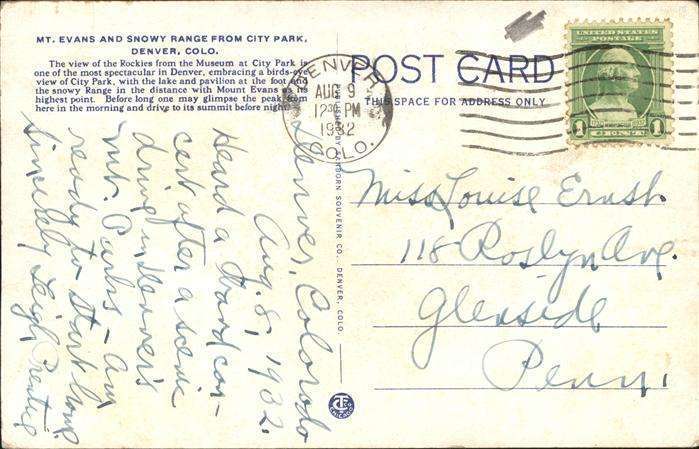 MT. EVANS AND SNOWY RANGE FROM CITY PARK,
DENVER, COLO.
The view of the Rockies from the Museum at City Park is
one of the most spectacular in Denver, embracing a birds-eye
view of City Park, with the lake and pavilion at the foot and
the snowy Range in the distance with Mount Evans at its
highest point. Before long one may glimpse the peak from
here in the morning and drive to its summit before night.
POST CARD
THIS SPACE FOR ADDRESS ONLY
DENVER
AUG 9
12 30 PM
1932
COLO.
UNITED STATES
POSTAGE
1 CENT 1
SANBORN SOUVENIR CO., DENVER, COLO.
Denver, Colorado
Aug. 8, 1932.
Heard a band con-
cert after a scenic
drive in Denver's
mt. Parks - am
ready to start home.
Sincerely Leigh
Miss Louise Ernst
118 Roslyn Ave.
Glenside
Penn.